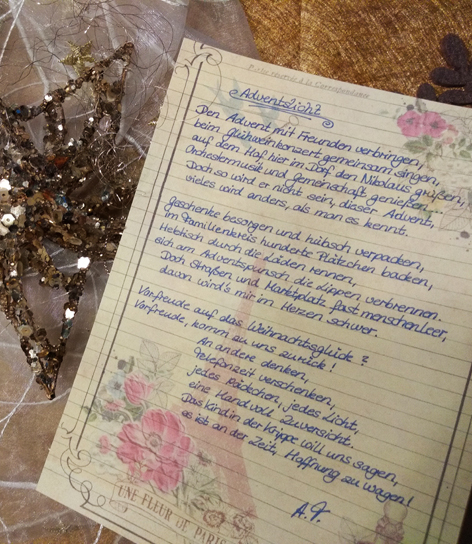 Partie réservée à la Correspondance
Adventslicht
Den Advent mit Freunden verbringen,
beim Glühweinkonzert gemeinsam singen,
auf dem Hof hier im Dorf den Nikolaus grüßen,
Orchestermusik und Gemeinschaft genießen.
Doch so wird er nicht sein, dieser Advent,
vieles wird anders, als man es kennt.
Geschenke besorgen und hübsch verpacken,
im Familienkreis hunderte Plätzchen backen,
Hektisch durch die Läden rennen,
sich am Adventspunsch die Lippen verbrennen.
Doch Straßen und Marktplatz fast menschenleer,
davon wird's mir im Herzen schwer.
Vorfreude auf das Weihnachtsglück?
Vorfreude, komm zu uns zurück!
An andere denken,
Telefonzeit verschenken,
jedes Päckchen, jedes Licht,
eine Handvoll Zuversicht.
Das Kind in der Krippe will uns sagen,
es ist an der Zeit, Hoffnung zu wagen!
A.F.
UNE FLEUR DE PARIS